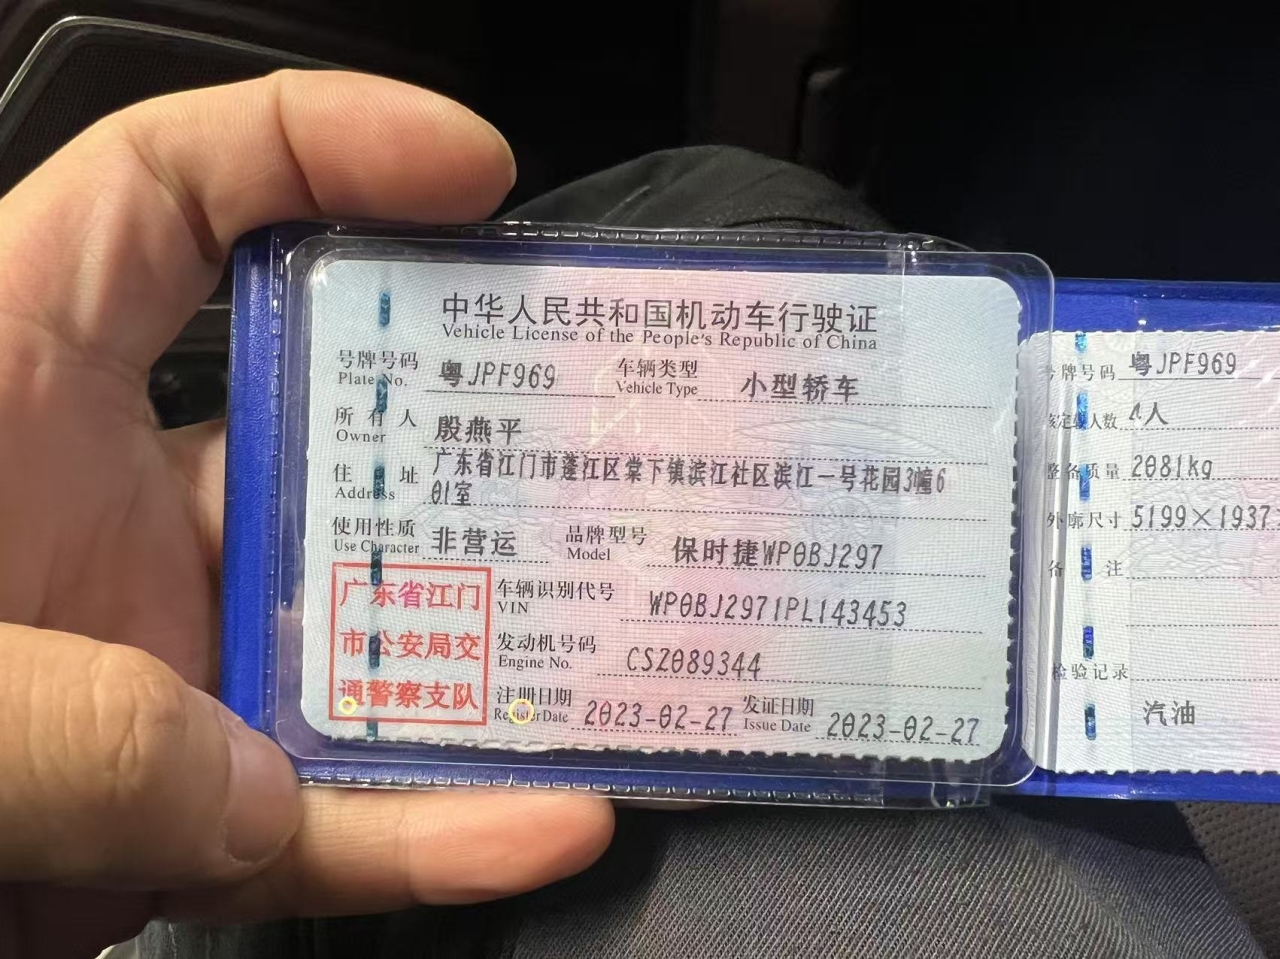 中华人民共和国机动车行驶证
Vehicle License of the People's Republic of China
号牌号码 粤JPF969 车辆类型 小型轿车
Plate No. Vehicle Type
所有人 殷燕平
Owner
住址 广东省江门市蓬江区棠下镇滨江社区滨江一号花园3幢6
Address 01室
使用性质 非营运 品牌型号 保时捷WP0BJ297
Use Character Model
广东省江门
市公安局交
通警察支队
车辆识别代号 WP0BJ2971PL143453
VIN
发动机号码 CSZ089344
Engine No.
注册日期 2023-02-27 发证日期 2023-02-27
Register Date Issue Date
号牌号码 粤JPF969
核定载人数 4人
整备质量 2081kg
外廓尺寸 5199×1937
备注
检验记录
汽油